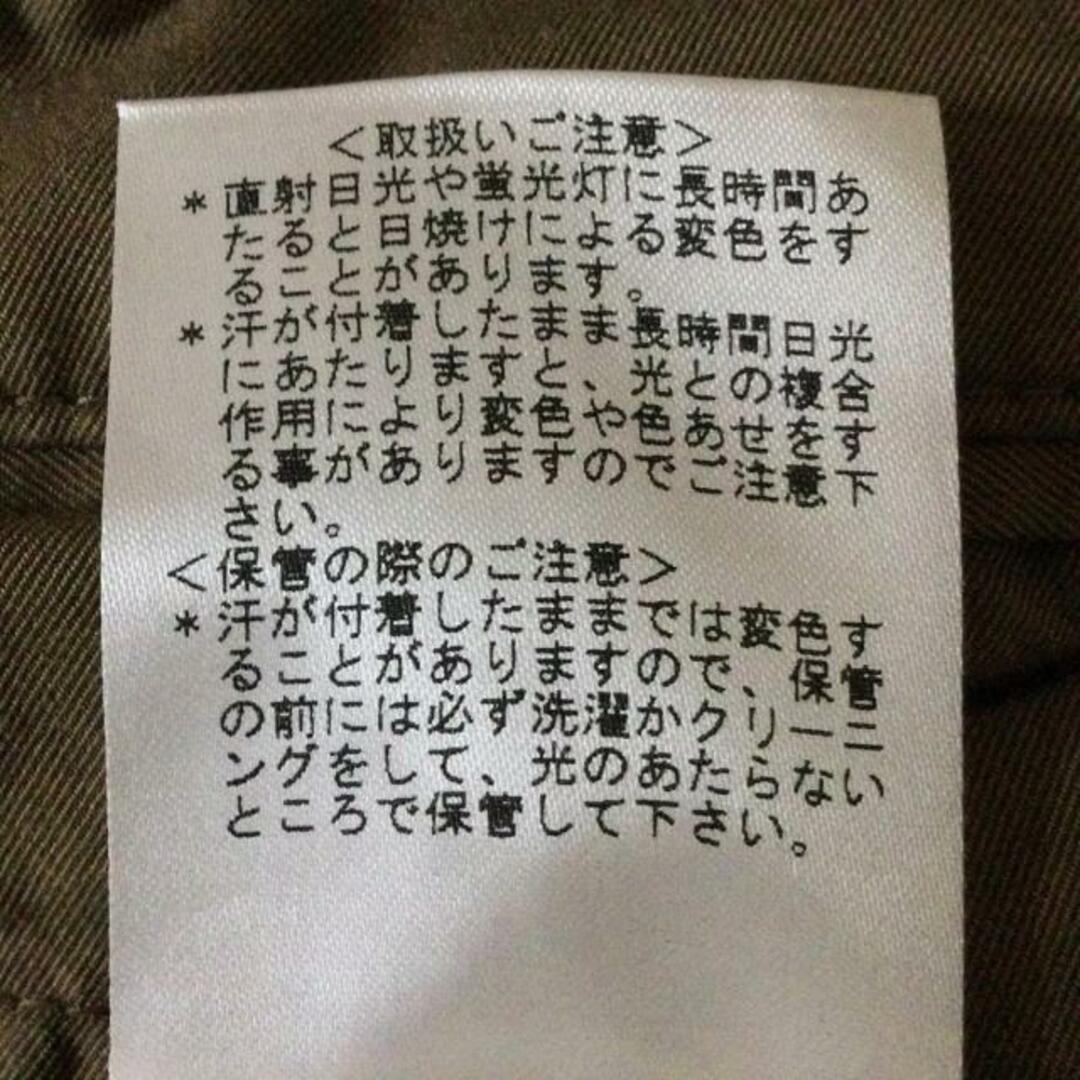 ＜取扱いご注意＞
＊直射日光や蛍光灯に長時間あ
たると日焼けによる変色をす
ることがあります。
＊汗が付着したまま長時間日光
にあたりますと、光との複合
作用により変色や色あせをす
る事がありますのでご注意下
さい。
＜保管の際のご注意＞
＊汗が付着したままでは変色す
ることがありますので、保管
の前には必ず洗濯かクリーニ
ングをして、光のあたらない
ところで保管して下さい。